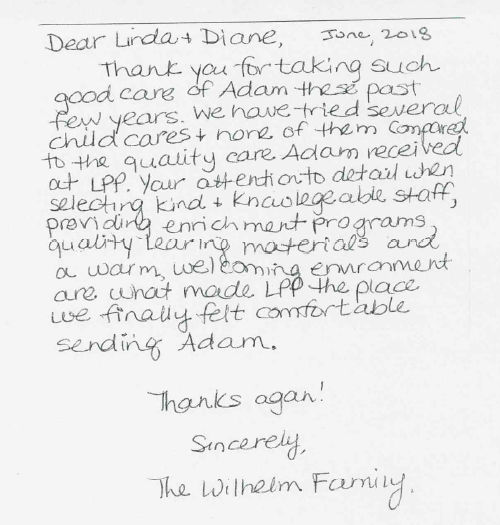 Dear Linda + Diane, June, 2018
Thank you for taking such
good care of Adam these past
few years. We have tried several
child cares + none of them compared
to the quality care Adam received
at LPP. Your attention to detail when
selecting kind + knowlegeable staff,
providing enrichment programs,
quality learing materials and
a warm, welcoming environment
are what made LPP the place
we finally felt comfortable
sending Adam.
Thanks agan!
Sincerely,
The Wilhelm Family.